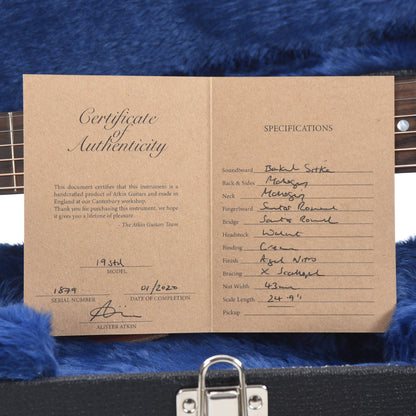 Certificate
of
Authenticity
This document certifies that this instrument is a
handcrafted product of Atkin Guitars and made in
England at our Canterbury workshop.
Thank you for purchasing this instrument, we hope
it gives you a lifetime of pleasure.
- The Atkin Guitars Team
19 Std
MODEL
1879 01/2020
SERIAL NUMBER DATE OF COMPLETION
ALISTER ATKIN
SPECIFICATIONS
Soundboard Baked Sitka
Back & Sides Mahogany
Neck Mahogany
Fingerboard Santos Rosewood
Bridge Santos Rosewood
Headstock Walnut
Binding Cream
Finish Aged Nitro
Bracing X Scalloped
Nut Width 43mm
Scale Length 24.9"
Pickup